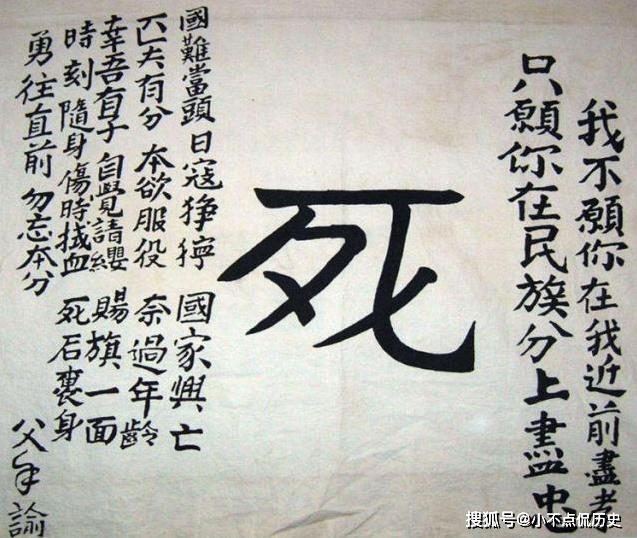 我不願你在我近前盡孝
只願你在民族分上盡忠
死
國難當頭 日寇猙獰 國家興亡
匹夫有分 本欲服役 奈過年齡
幸吾有子 自覺請纓 賜旗一面
時刻隨身 傷時拭血 死后裹身
勇往直前 勿忘本分
父手諭
搜狐号@小不点侃历史